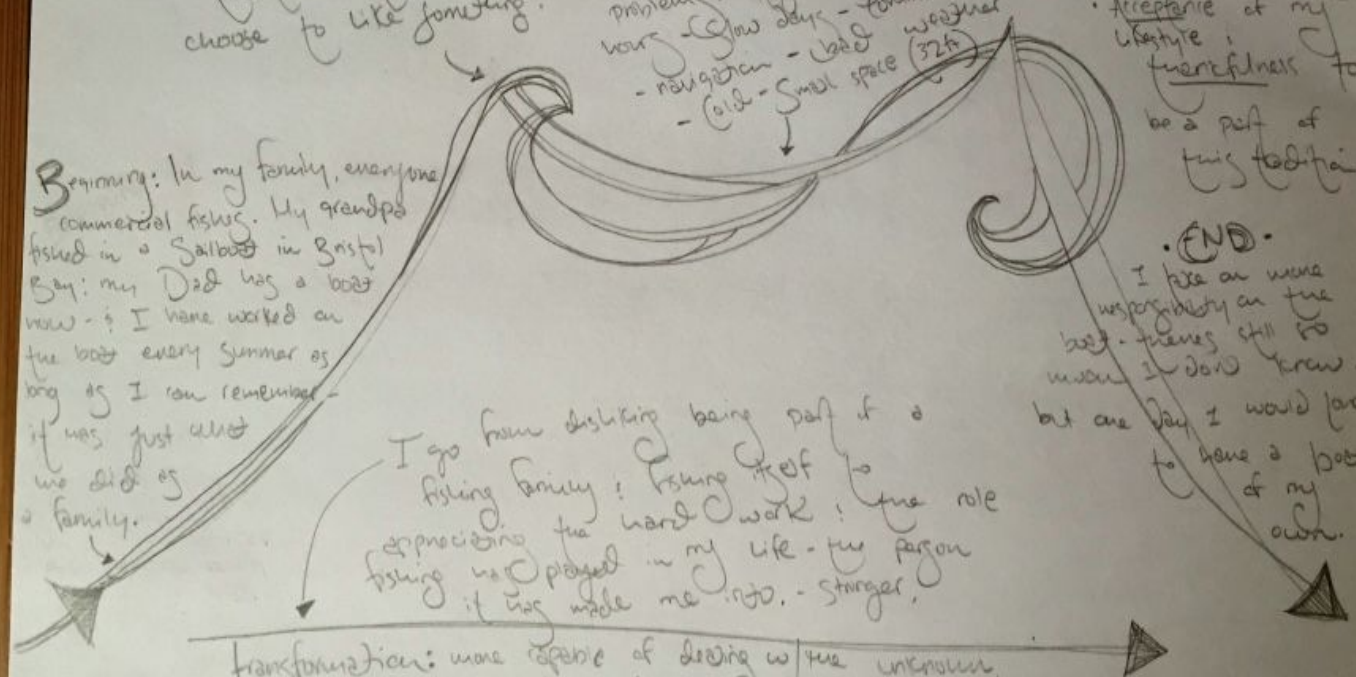 choose to like something.
problem
hours - (slow days -
- navigation - bad weather
- Cold - Small space (32ft)
• Acceptance of my
lifestyle &
thankfulness to
be a part of
this tradition
Beginning: In my family, everyone
commercial fishes. My grandpa
fished in a Sailboat in Bristol
Bay; my Dad has a boat
now - & I have worked on
the boat every summer as
long as I can remember -
it was just what
we did as
a family.
• END •
I take on more
responsibility on the
boat - theres still so
much I don't know
but one day I would love
to have a boat
of my
own.
I go from disliking being part of a
fishing family & fishing itself to
appreciating the hard work & the role
fishing has played in my life - the person
it has made me into. - Stronger.
transformation: more capable of dealing w/ the unknown